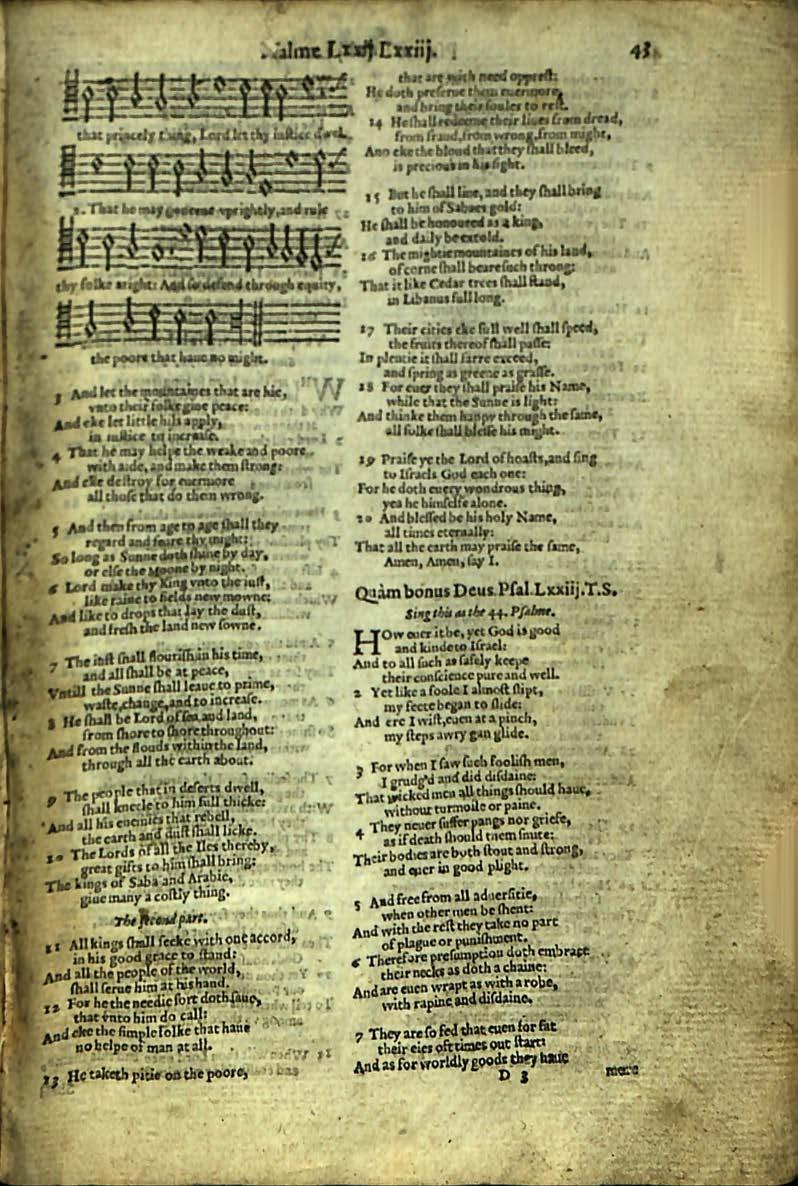 Psalme Lxxij Lxxiij. 43
that princely thing, Lord let thy iustice
2. That he may gouerne vprightly, and rule
thy folke aright: And so defend through equity,
the poore that haue no might.
3 And let the mountaines that are hie,
vnto their folke giue peace:
And eke let little hils apply,
in iustice to increase.
4 That he may helpe the weake and poore
with aide, and make them strong:
And eke destroy for euermore
all those that do them wrong.
5 And then from age to age shall they
regard and feare thy might:
So long as Sunne doth shine by day,
or else the Moone by night.
6 Lord make thy King vnto the iust,
like raine to fields new mowne:
And like to drops that lay the dust,
and fresh the land new sowne.
7 The iust shall flourish in his time,
and all shall be at peace,
Vntill the Sunne shall leaue to prime,
waste, change, and to increase.
8 He shall be Lord of sea and land,
from shore to shore throughout:
And from the flouds within the land,
through all the earth about.
9 The people that in deserts dwell,
shall kneele to him full thicke:
And all his enemies that rebell,
the earth and dust shall licke.
10 The Lords of all the Iles thereby,
great gifts to him shall bring:
The kings of Saba and Arabie,
giue many a costly thing.
The second part.
11 All kings shall seeke with one accord,
in his good grace to stand:
And all the people of the world,
shall serue him at his hand.
12 For he the needie sort doth saue,
that vnto him do call:
And eke the simple folke that haue
no helpe of man at all.
13 He taketh pitie on the poore,
that are with need opprest:
He doth preserue them euermore,
and bring their soules to rest.
14 He shall redeeme their liues from dread,
from fraud, from wrong, from might,
And eke the bloud that they shall bleed,
is precious in his sight.
15 But he shall liue, and they shall bring
to him of Sabaes gold:
He shall be honoured as a king,
and daily be extold.
16 The mightie mountaines of his land,
of corne shall beare such throng:
That it like Cedar trees shall stand,
in Libanus full long.
17 Their cities eke full well shall speed,
the fruits thereof shall passe:
In plentie it shall farre exceed,
and spring as greene as grasse.
18 For euer they shall praise his Name,
while that the Sunne is light:
And thinke them happy through the same,
all folke shall blesse his might.
19 Praise ye the Lord of hoasts, and sing
to Israels God each one:
For he doth euery wondrous thing,
yea he himselfe alone.
20 And blessed be his holy Name,
all times eternally:
That all the earth may praise the same,
Amen, Amen, say I.
Quàm bonus Deus. Psal. Lxxiij. T.S.
Sing this as the 44. Psalme.
HOw euer it be, yet God is good
and kinde to Israel:
And to all such as safely keepe
their conscience pure and well.
2 Yet like a foole I almost slipt,
my feete began to slide:
And ere I wist, euen at a pinch,
my steps awry gan glide.
3 For when I saw such foolish men,
I grudg'd and did disdaine:
That wicked men all things should haue,
without turmoile or paine.
4 They neuer suffer pangs nor griefe,
as if death should them smite:
Their bodies are both stout and strong,
and euer in good plight.
5 And free from all aduersitie,
when other men be shent:
And with the rest they take no part
of plague or punishment.
6 Therefore presumption doth embrace
their necks as doth a chaine:
And are euen wrapt as with a robe,
with rapine and disdaine.
7 They are so fed that euen for fat
their eies oft times out start:
And as for worldly goods they haue
D 3 more